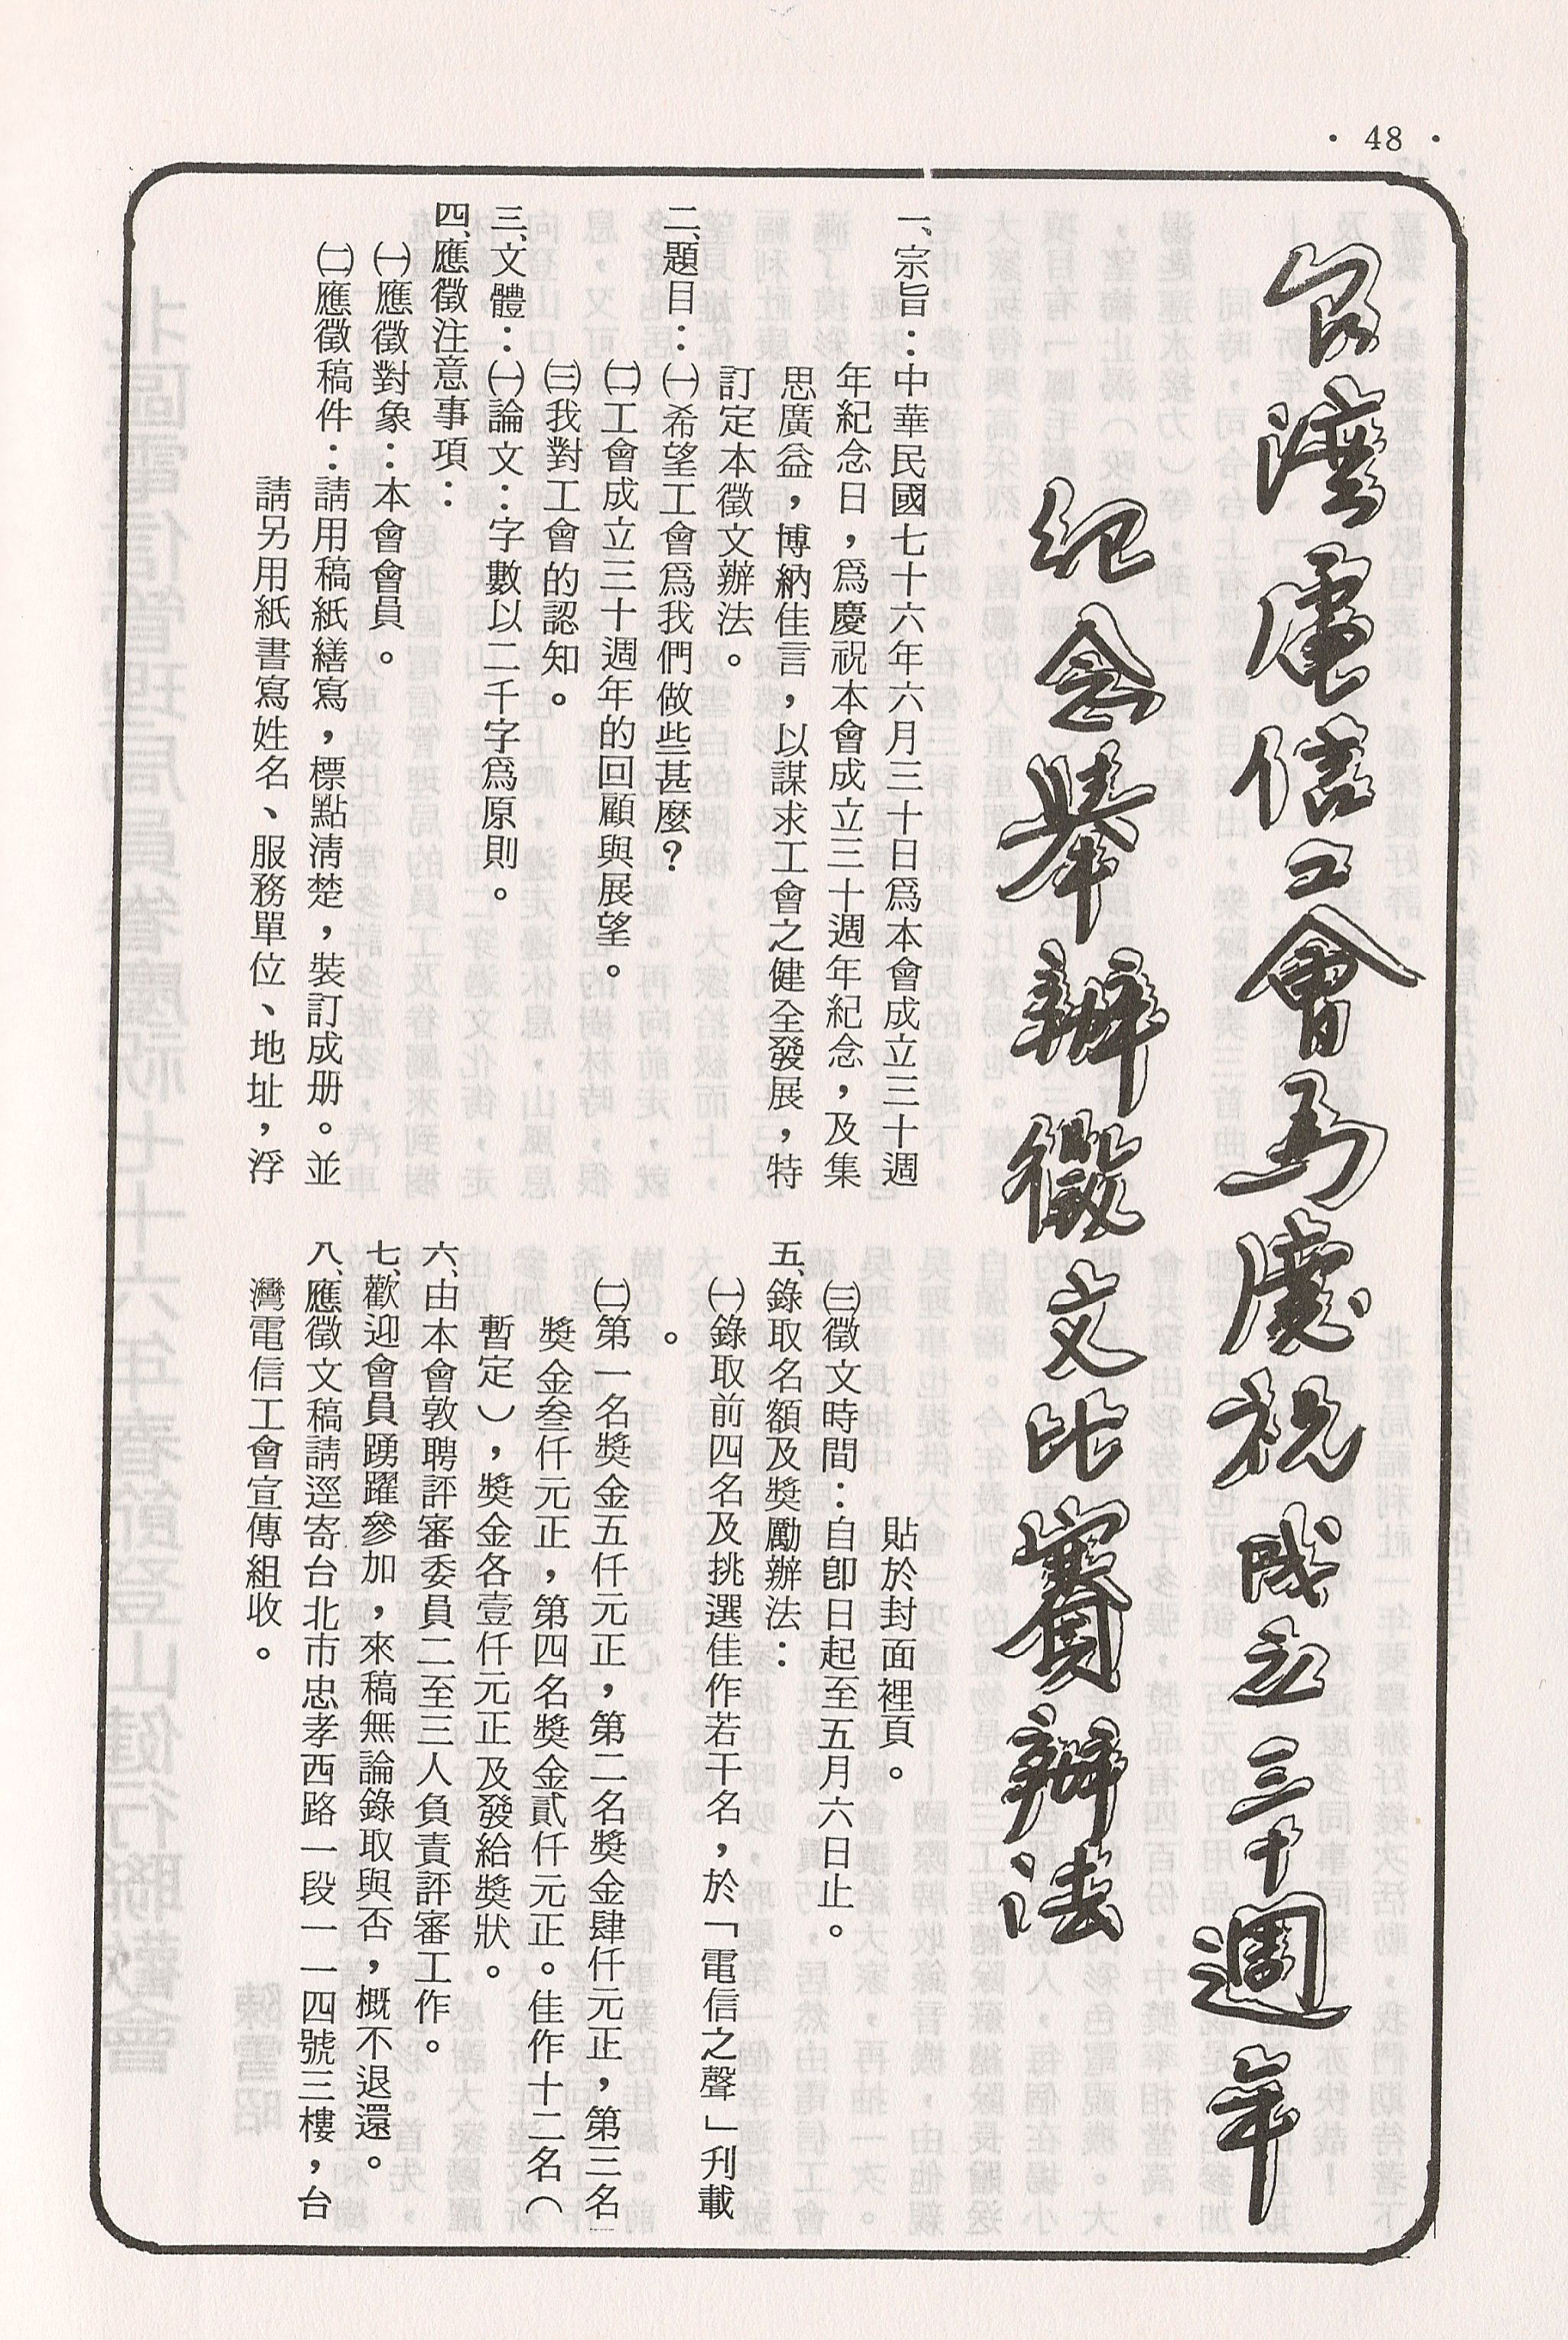 • 48 •
台灣電信工會為慶祝成立三十週年
紀念舉辦徵文比賽辦法
一、宗旨：中華民國七十六年六月三十日爲本會成立三十週
年紀念日，爲慶祝本會成立三十週年紀念，及集
思廣益，博納佳言，以謀求工會之健全發展，特
訂定本徵文辦法。
二、題目：㈠希望工會爲我們做些甚麼？
㈡工會成立三十週年的回顧與展望。
㈢我對工會的認知。
三、文體：㈠論文：字數以二千字爲原則。
四、應徵注意事項：
㈠應徵對象：本會會員。
㈡應徵稿件：請用稿紙繕寫，標點淸楚，裝訂成册。並
請另用紙書寫姓名、服務單位、地址，浮
貼於封面裡頁。
㈢徵文時間：自卽日起至五月六日止。
五、錄取名額及獎勵辦法：
㈠錄取前四名及挑選佳作若干名，於「電信之聲」刋載
。
㈡第一名獎金五仟元正，第二名獎金肆仟元正，第三名
獎金叁仟元正，第四名獎金貳仟元正。佳作十二名（
暫定），獎金各壹仟元正及發給獎狀。
六、由本會敦聘評審委員二至三人負責評審工作。
七、歡迎會員踴躍參加，來稿無論錄取與否，概不退還。
八、應徵文稿請逕寄台北市忠孝西路一段一一四號三樓，台
灣電信工會宣傳組收。